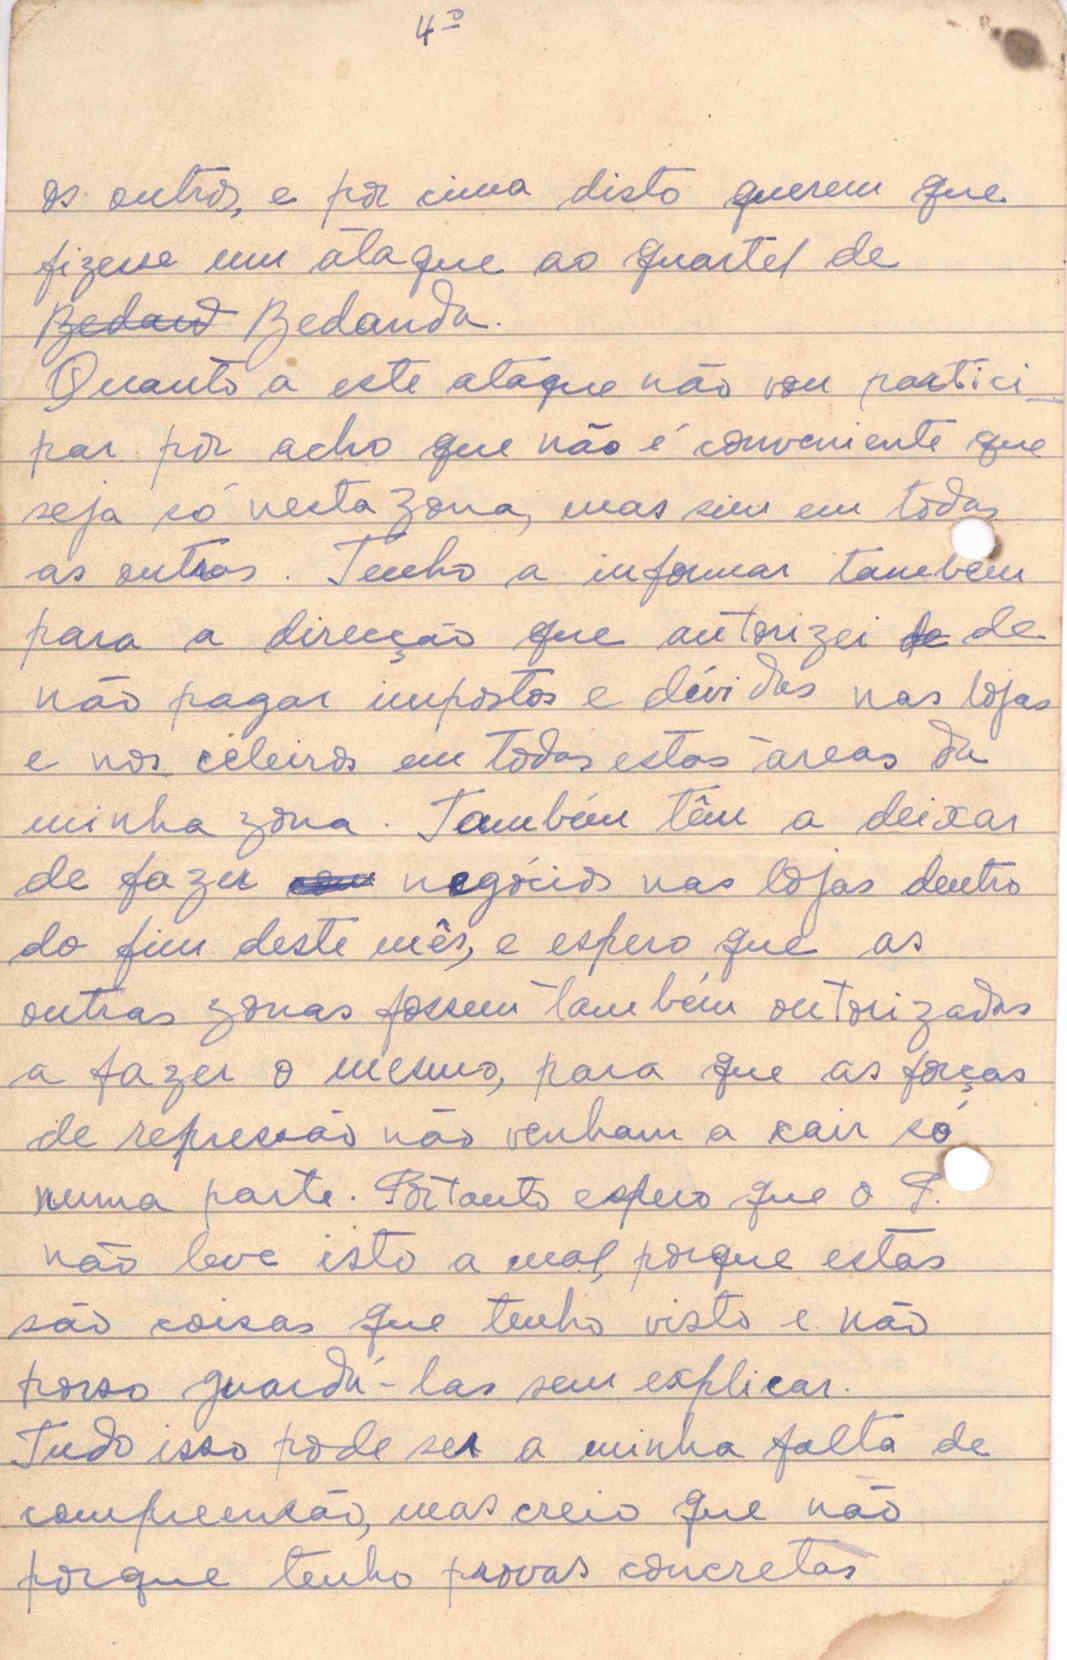 4º
os outros, e por cima disto querem que
fizesse um átaque ao quartel de
Bedand Bedanda.
Quanto a este ataque não vou partici-
par por acho que não é conveniente que
seja só nesta zona, mas sim em todas
as outras. Tenho a informar tambem
para a direcção que autorizei de de
não pagar impostos e dívidas nas lojas
e nos celeiros em todas estas áreas da
minha zona. Também têm a deixar
de fazer negócios nas lojas dentro
do fim deste mês, e espero que as
outras zonas fossem também autorizadas
a fazer o mesmo, para que as forças
de repressão não venham a cair só
numa parte. Portanto espero que o P.
não leve isto a mal, porque estas
são coisas que tenho visto e não
posso guardá-las sem explicar.
Tudo isso pode ser a minha falta de
compreensão, mas creio que não
porque tenho provas concretas